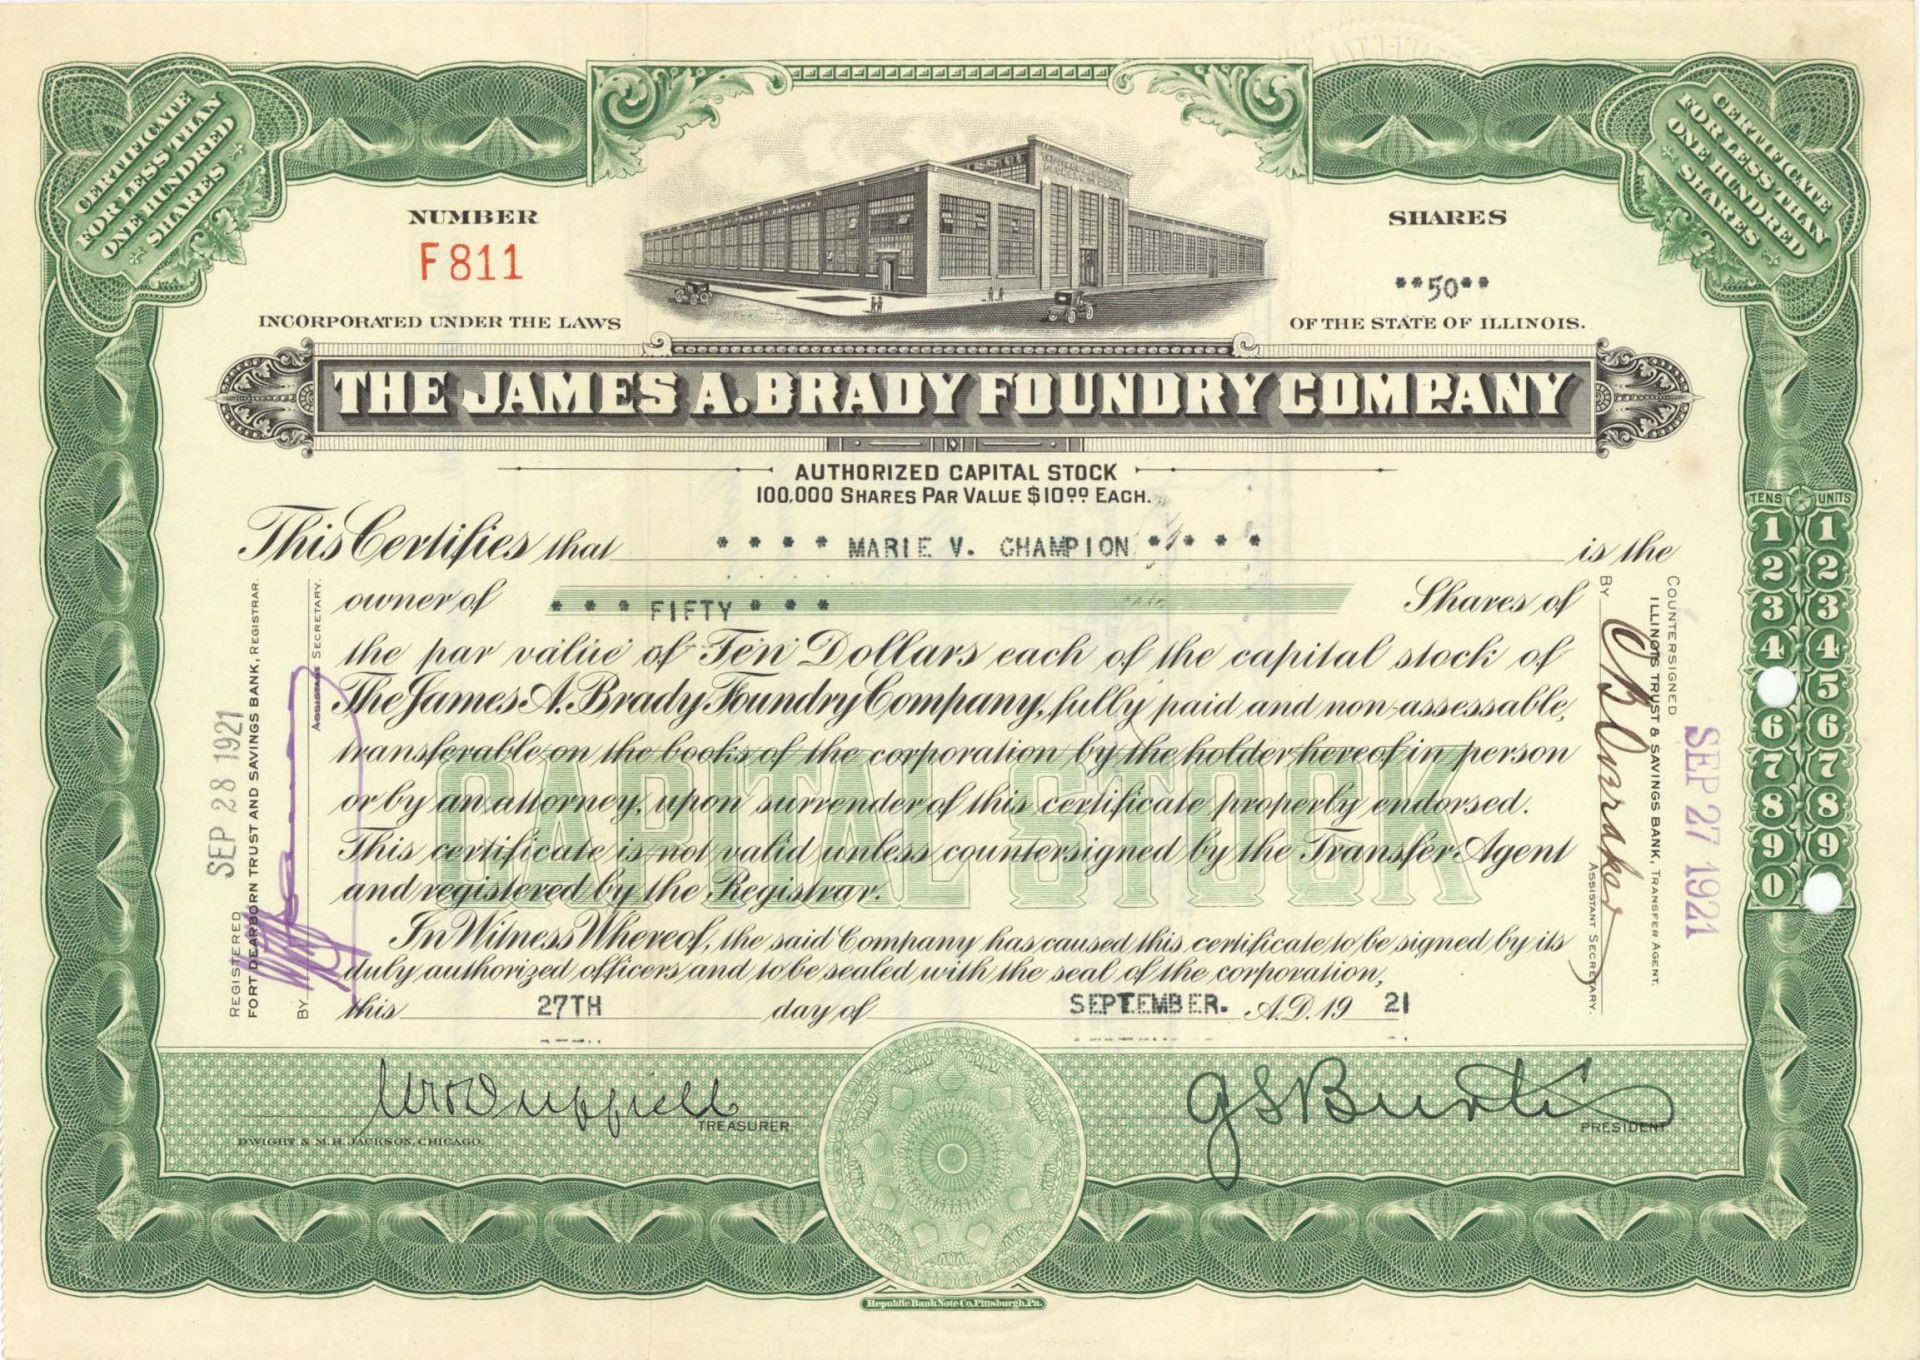 CERTIFICATE
FOR LESS THAN
ONE HUNDRED
SHARES
CERTIFICATE
FOR LESS THAN
ONE HUNDRED
SHARES
NUMBER
F811
SHARES
**50**
INCORPORATED UNDER THE LAWS
OF THE STATE OF ILLINOIS.
THE JAMES A. BRADY FOUNDRY COMPANY
AUTHORIZED CAPITAL STOCK
100,000 SHARES PAR VALUE $10.00 EACH.
This Certifies that * * * * MARIE V. CHAMPION * * * * is the
owner of * * * FIFTY * * * Shares of
the par value of Ten Dollars each of the capital stock of
The James A. Brady Foundry Company, fully paid and non-assessable,
transferable on the books of the corporation by the holder hereof in person
or by an attorney, upon surrender of this certificate properly endorsed.
This certificate is not valid unless countersigned by the Transfer Agent
and registered by the Registrar.
In Witness Whereof, the said Company has caused this certificate to be signed by its
duly authorized officers and to be sealed with the seal of the corporation,
this 27TH day of SEPTEMBER. A.D. 1921
CAPITAL STOCK
SEP 28 1921
REGISTERED
FORT DEARBORN TRUST AND SAVINGS BANK, REGISTRAR.
BY
ASSISTANT SECRETARY.
COUNTERSIGNED
ILLINOIS TRUST & SAVINGS BANK, TRANSFER AGENT.
BY
ASSISTANT SECRETARY.
SEP 27 1921
TENS UNITS
1 1
2 2
3 3
4 4
5
6 6
7 7
8 8
9 9
0
TREASURER
G S Burtis
PRESIDENT
DWIGHT & M.H. JACKSON, CHICAGO.
Republic Bank Note Co. Pittsburgh, Pa.